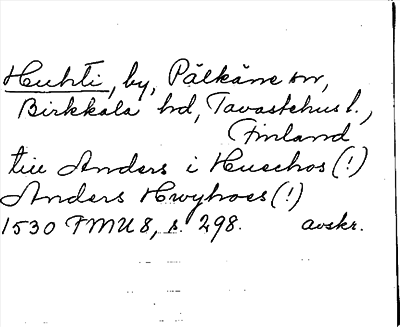 Huhti, by, Pälkäne sn,
Birkkala hd, Tavastehus l.,
Finland
till Anders i Huechos (!)
Anders Hwyhoes (!)
1530 FMU 8, s. 298. avskr.